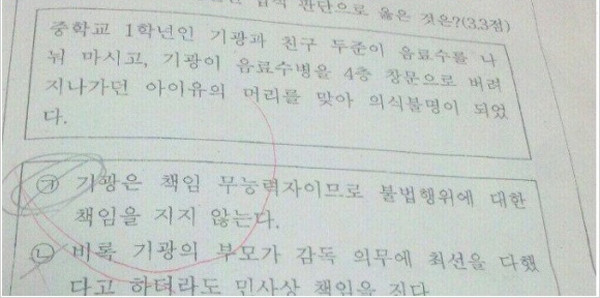 판단으로 옳은 것은?(3.3점)
중학교 1학년인 기광과 친구 두준이 음료수를 나
눠 마시고, 기광이 음료수병을 4층 창문으로 버려
지나가던 아이유의 머리를 맞아 의식불명이 되었
다.
㉠ 기광은 책임 무능력자이므로 불법행위에 대한
책임을 지지 않는다.
㉡ 비록 기광의 부모가 감독 의무에 최선을 다했
다고 하더라도 민사상 책임을 진다.